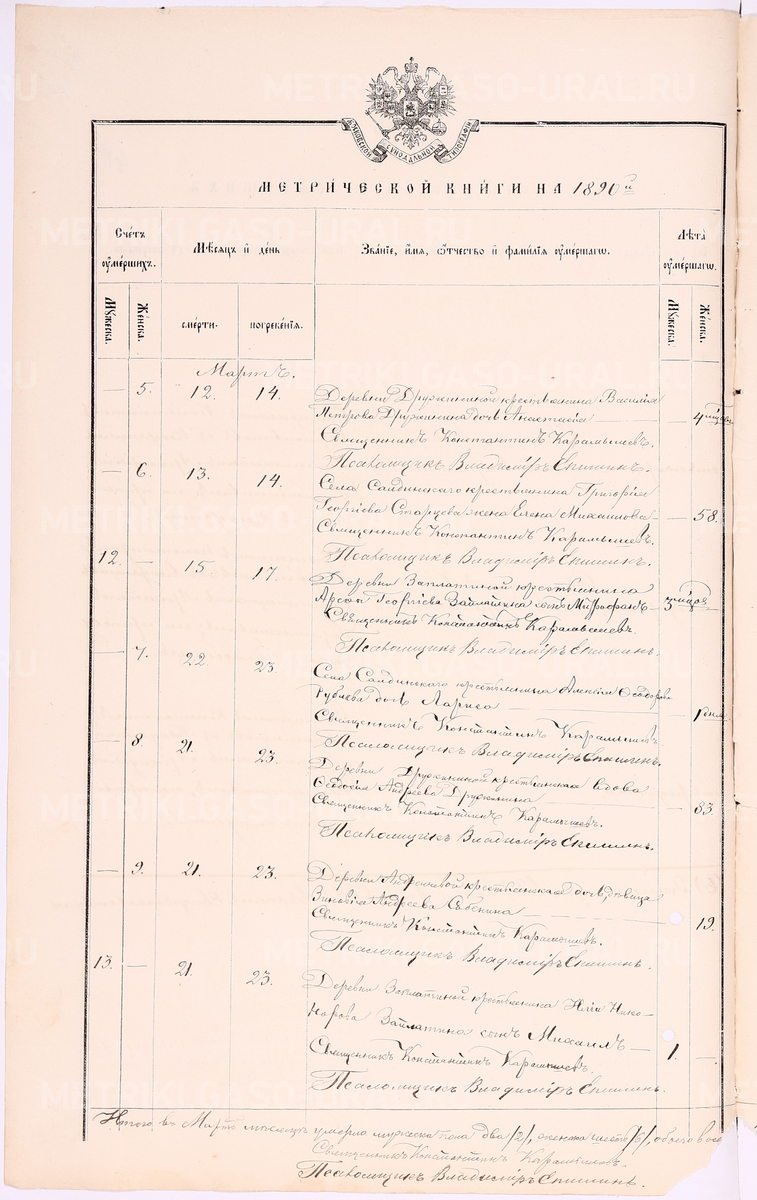 МОСКОВСКОЙ СѴНОДАЛЬНОЙ ТИПОГРАФІИ
МЕТРИ́ЧЕСКОЙ КНИ́ГИ НА 1890 й
Сче́тъ оуме́ршихъ.
Мѣ́сяцъ и҆ де́нь
Зва́ніе, и҆́мя, ѻ҆́тчество и҆ фами́лія оуме́ршагѡ.
Лѣ́та оуме́ршагѡ.
Мꙋ́жеска.
Же́нска.
сме́рти.
погребе́нія.
Мꙋ́жеска.
Же́нска.
Мартъ.
— 5. 12. 14. Деревни Дружининой крестьянина Василія
Петрова Дружинина дочь Анастасія — 4 мѣсяц.
Священникъ Константинъ Карамышевъ.
Псаломщикъ Владиміръ Епишинъ.
— 6. 13. 14. Села Салдинскаго крестьянина Григорія
Георгіева Старцева жена Елена Михаилова — 58.
Священникъ Константинъ Карамышевъ.
Псаломщикъ Владиміръ Епишинъ.
12. — 15. 17. Деревни Заплатиной крестьянина
Георгіева Заплатина сынъ Митрофанъ — 3 мѣсяц. —
Священникъ Константинъ Карамышевъ.
Псаломщикъ Владиміръ Епишинъ.
— 7. 22. 23. Села Салдинскаго крестьянина Алексія Ѳеодорова
дочь Лариса — 1 дня
Священникъ Константинъ Карамышевъ
Псаломщикъ Владиміръ Епишинъ.
— 8. 21. 23. Деревни Дружининой крестьянская вдова
Ѳеодосія Андреева Дружинина — 83.
Священникъ Константинъ Карамышевъ.
Псаломщикъ Владиміръ Епишинъ.
— 9. 21. 23. Деревни крестьянская дочь, дѣвица
Зиновія Андреева — 19.
Священникъ Константинъ Карамышевъ.
Псаломщикъ Владиміръ Епишинъ.
13. — 21. 23. Деревни Заплатиной крестьянина Иліи Нико-
норова Заплатина сынъ Михаилъ — 1. —
Священникъ Константинъ Карамышевъ.
Псаломщикъ Владиміръ Епишинъ.
Итого въ Мартѣ мѣсяцѣ умерло мужеска пола два /2/, женска шесть /6/, обоего
Священникъ Константинъ Карамышевъ.
Псаломщикъ Владиміръ Епишинъ.